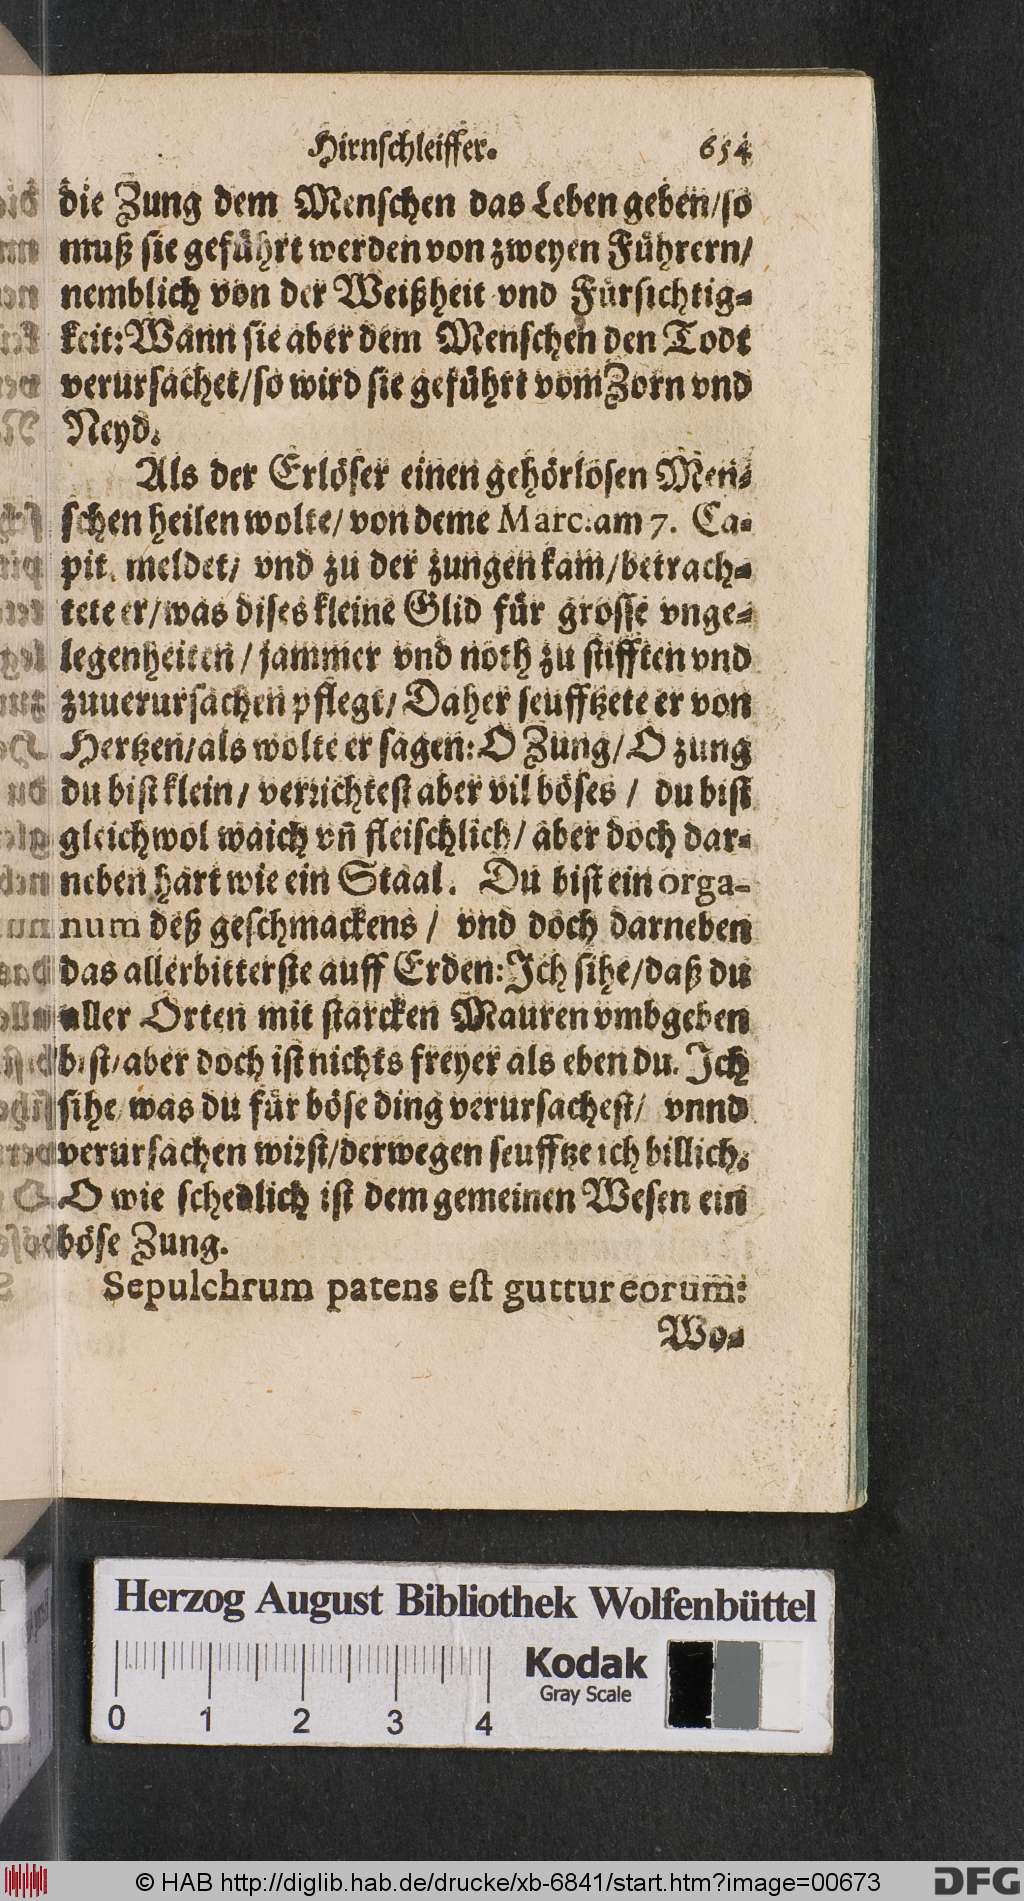 Hirnschleiffer. 654
die Zung dem Menschen das Leben geben/so
muß sie geführt werden von zweyen Führern/
nemblich von der Weißheit vnd Fürsichtig-
keit: Wann sie aber dem Menschen den Todt
verursachet/so wird sie geführt vom Zorn vnd
Neyd.
Als der Erlöser einen gehörlosen Men-
schen heilen wolte/ von deme Marc. am 7. Ca-
pit. meldet/ vnd zu der zungen kam/betrach-
tete er/was dises kleine Glid für grosse vnge-
legenheiten/ jammer vnd noth zu stifften vnd
zuuerursachen pflegt/ Daher seufftzete er von
Hertzen/als wolte er sagen: O Zung/ O zung
du bist klein/ verrichtest aber vil böses/ du bist
gleichwol waich vñ fleischlich/ aber doch dar-
neben hart wie ein Staal. Du bist ein orga-
num deß geschmackens/ vnd doch darneben
das allerbitterste auff Erden: Ich sihe/daß du
aller Orten mit starcken Mauren vmbgeben
bist/aber doch ist nichts freyer als eben du. Ich
sihe was du für böse ding verursachest/ vnnd
verursachen wirst/derwegen seufftze ich billich.
O wie schedlich ist dem gemeinen Wesen ein
böse Zung.
Sepulchrum patens est guttur eorum:
Wo-
Herzog August Bibliothek Wolfenbüttel
Kodak
Gray Scale
0 1 2 3 4
© HAB http://diglib.hab.de/drucke/xb-6841/start.htm?image=00673
DFG